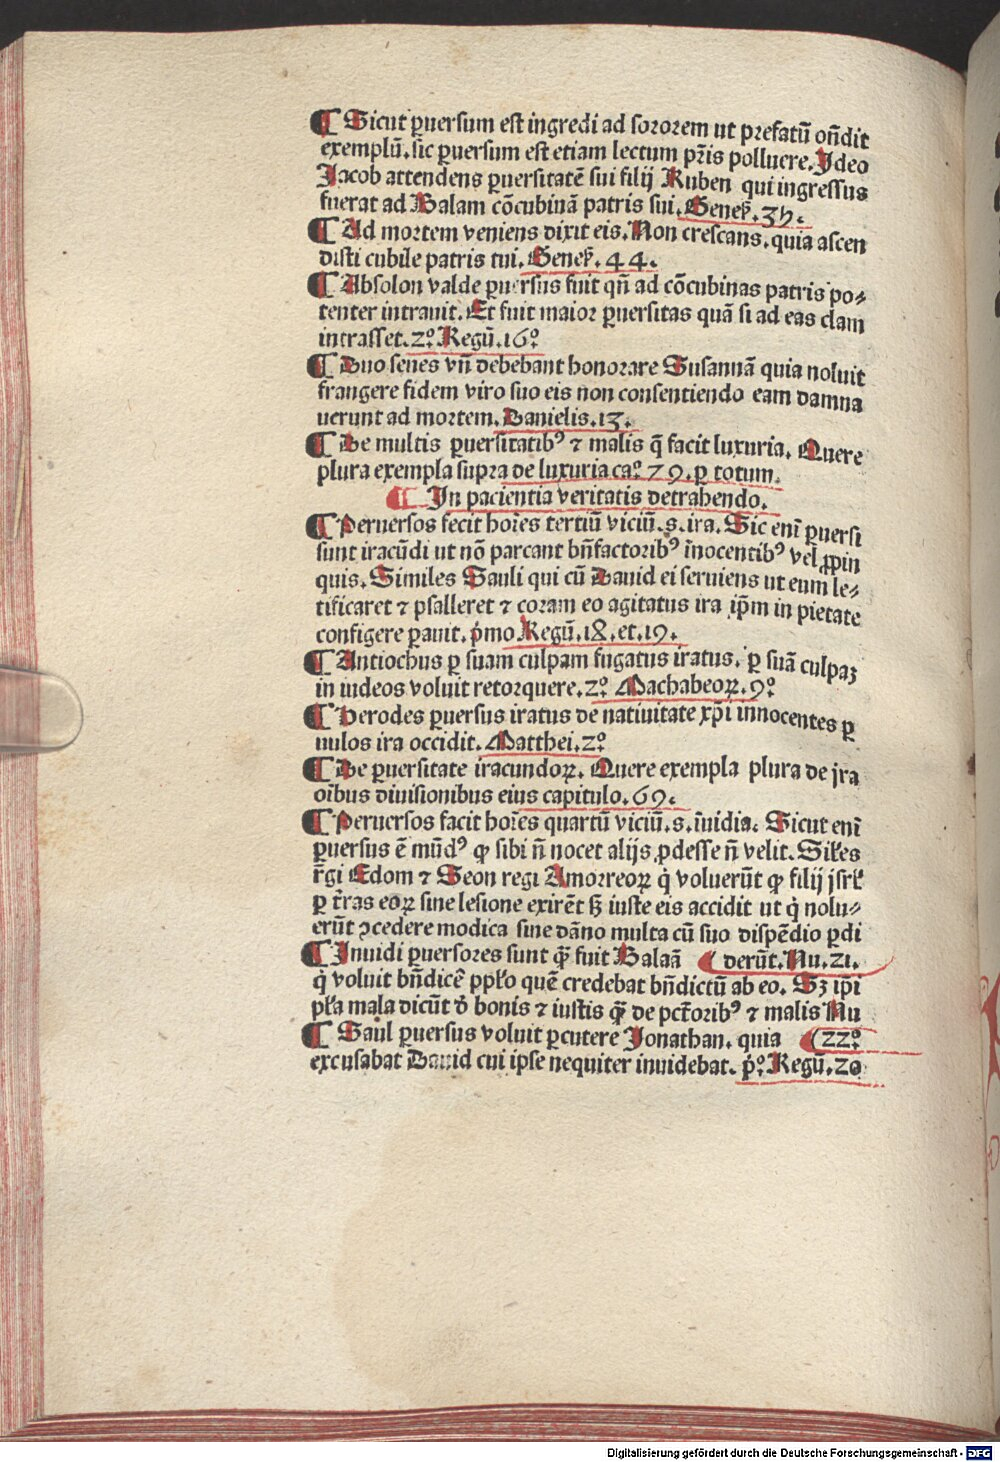 ¶ Sicut ꝑuersum est ingredi ad sororem ut prefatū oñdit
exemplū. sic ꝑuersum est etiam lectum pr̄is polluere. Ideo
Iacob attendens ꝑuersitatē sui filij Ruben qui ingressus
fuerat ad Balam cōcubinā patris sui. Geneſ̄. 35.
¶ Ad mortem veniens dixit eis. Non crescans. quia ascen
disti cubile patris tui. Geneſ̄. 44.
¶ Absolon valde ꝑuersus fuit qñ ad cōcubinas patris po⸗
tenter intrauit. Et fuit maior ꝑuersitas quā si ad eas clam
intrasset. 2º Regū. 16º
¶ Duo senes vñ debebant honorare Susannā quia noluit
frangere fidem viro suo eis non consentiendo eam damna
uerunt ad mortem. Danielis. 13.
¶ De multis ꝑuersitatibꝰ ⁊ malis q̄ facit luxuria. Quere
plura exempla supra de luxuria ca.º 79. ꝑ totum.
¶ In pacientia veritatis detrahendo.
¶ Peruersos fecit hoīes tertiū viciū. s. ira. Sic enī ꝑuersi
sunt iracūdi ut nō parcant bñfactoribꝰ īnocentibꝰ vel ꝓpin
quis. Similes Sauli qui cū Dauid ei seruiens ut eum le⸗
tificaret ⁊ psalleret ⁊ coram eo agitatus ira ip̄m in pietate
configere ꝑauit. p̓mo Regū. 18. et. 19.
¶ Antiochus ꝑ suam culpam fugatus iratus. ꝑ suā culpaꝫ
in iudeos voluit retorquere. 2º Machabeoꝝ. 9º
¶ Herodes ꝑuersus iratus de natiuitate xp̄i innocentes ꝑ
uulos ira occidit. Matthei. 2º
¶ De ꝑuersitate iracundoꝝ. Quere exempla plura de ira
oībus diuisionibus eius capitulo. 69.
¶ Peruersos facit hoīes quartū viciū. s. īuidia. Sicut enī
ꝑuersus ē mūdꝰ ꝙ sibi ñ nocet alijs ꝓdesse ñ velit. Sil̄es
r̄gi Edom ⁊ Seon regi Amorreoꝝ q̇ voluerūt ꝙ filij jsrl̄
ꝑ t̄ras eoꝝ sine lesione exirēt sꝫ iuste eis accidit ut q̇ nolu⸗
erūt ꝯcedere modica sine dāno multa cū suo dispēdio ꝑdi
¶ Inuidi ꝑuersores sunt qr̄ fuit Balaā ( derūt. Nu. 21.
q̇ voluit bñdicē ppl̄o quē credebat bñdictū ab eo. Sꝫ ip̄i
pl̄a mala dicūt ď bonis ⁊ iustis qr̄ de pct̄oribꝰ ⁊ malis Nu
¶ Saul ꝑuersus voluit ꝑcutere Jonathan. quia (22º
excusabat Dauid cui ipse nequiter inuidebat. p̓º Regū. 20
Digitalisierung gefördert durch die Deutsche Forschungsgemeinschaft - DFG